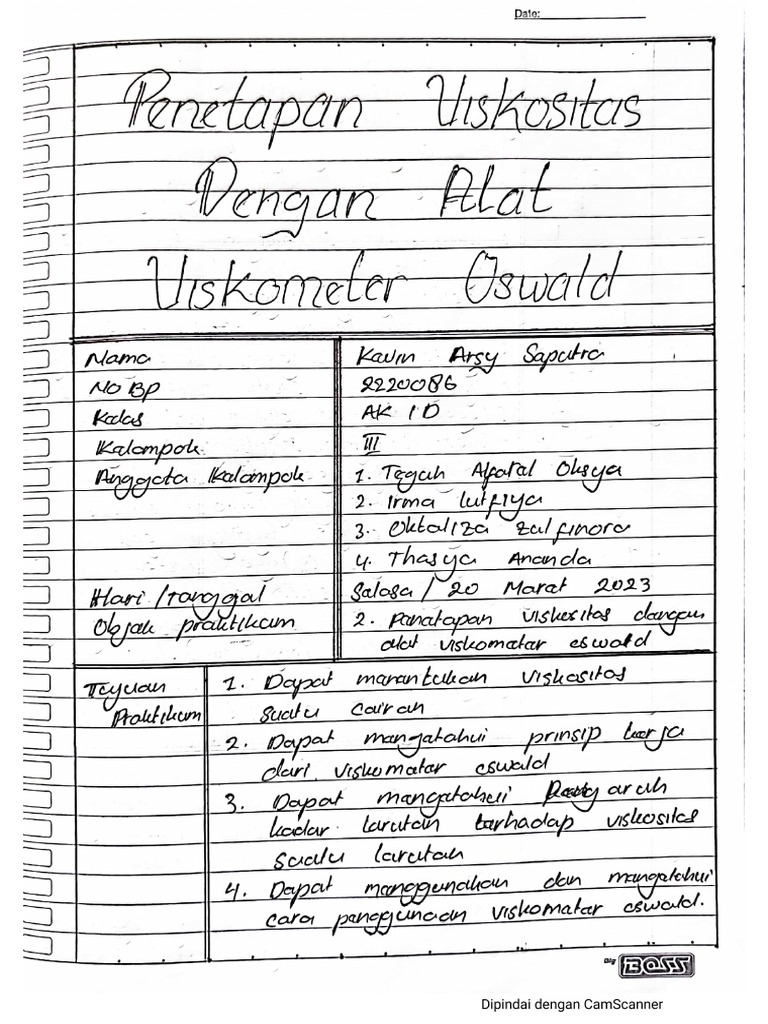 Date:
Penetapan Viskositas
Dengan Alat
Viskometer Oswald
Nama
Kavin Arsy Saputra
No BP
2220086
Kelas
AK 1D
Kelompok
III
Anggota Kelompok
1. Teguh Alfatal Oksya
2. Irma lutfiya
3. Oktaliza zulfinora
4. Thasya Ananda
Hari / Tanggal
Selasa / 20 Maret 2023
Objek praktikum
2. Penetapan viskositas dengan
alat viskometer oswald
Tujuan
Praktikum
1. Dapat menentukan viskositas
suatu cairan
2. Dapat mengetahui prinsip kerja
dari viskometer oswald
3. Dapat mengetahui Pengaruh
kadar larutan terhadap viskositas
suatu larutan
4. Dapat menggunakan dan mengetahui
cara penggunaan viskometer oswald.
Big BOSS
Dipindai dengan CamScanner